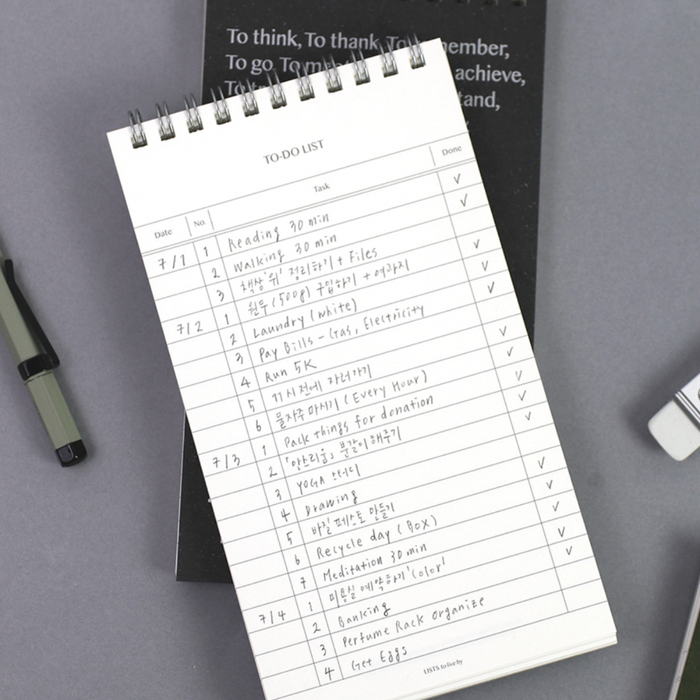 To think, To thank, To
ember,
To go, To m
achieve,
To
tand,
TO-DO LIST
Date No. Task Done
7/1 1 Reading 30 min ✓
2 Walking 30 min ✓
3 책상 '위' 정리하기 + Files
7/2 1 원두 (500g) 구입하기 + 여과지 ✓
2 Laundry (white) ✓
3 Pay Bills - Gas, Electricity ✓
4 Run 5K
5 11시 전에 자러가기 ✓
6 물 자주 마시기 (Every Hour) ✓
7/3 1 Pack things for donation ✓
2 분갈이 해주기 ✓
3 YOGA 스터디
4 Drawing
5 바질 페스토 만들기 ✓
6 Recycle day (BOX) ✓
7 Meditation 30 min ✓
7/4 1 미용실 예약하기 'Color' ✓
2 Banking ✓
3 Perfume Rack organize
4 Get Eggs
LISTS to live by